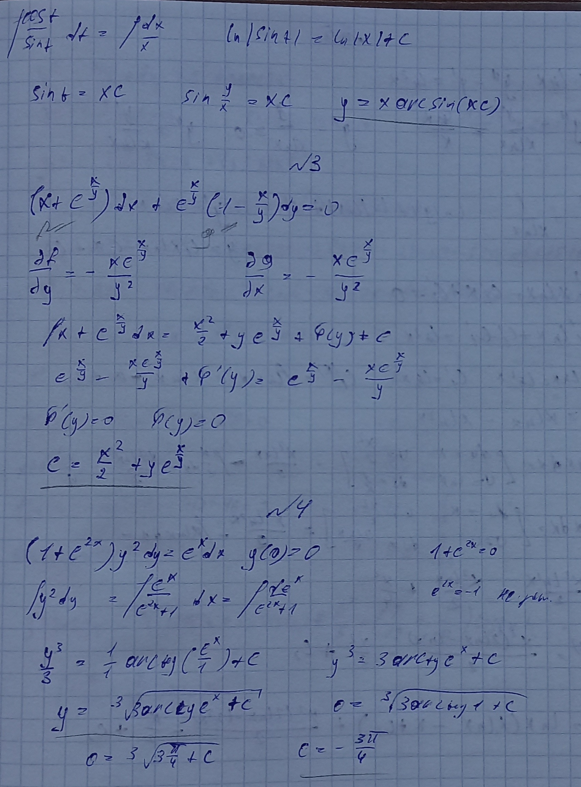 ∫ cost/sint dt = ∫ dx/x    ln|sint| = ln|x| + C
sint = xC    sin y/x = xC    y = x arcsin(xC)
№3
(x + e^(x/y)) dx + e^(x/y) (1 - x/y) dy = 0
∂f/∂y = - xe^(x/y)/y²    ∂g/∂x = - xe^(x/y)/y²
∫x + e^(x/y) dx = x²/2 + y e^(x/y) + φ(y) + C
e^(x/y) - xe^(x/y)/y + φ'(y) = e^(x/y) - xe^(x/y)/y
φ'(y) = 0    φ(y) = 0
C = x²/2 + y e^(x/y)
№4
(1 + e^(2x)) y² dy = e^x dx    y(0) = 0    1 + e^(2x) = 0
∫y² dy = ∫ e^x/(e^(2x)+1) dx = ∫ de^x/(e^(2x)+1)    e^(2x) = -1
y³/3 = 1/1 arctg(e^x/1) + C    y³ = 3 arctg e^x + C
y = ³√(3 arctg e^x + C)    0 = ³√(3 arctg 1 + C)
0 = ³√(3 π/4 + C)    C = - 3π/4